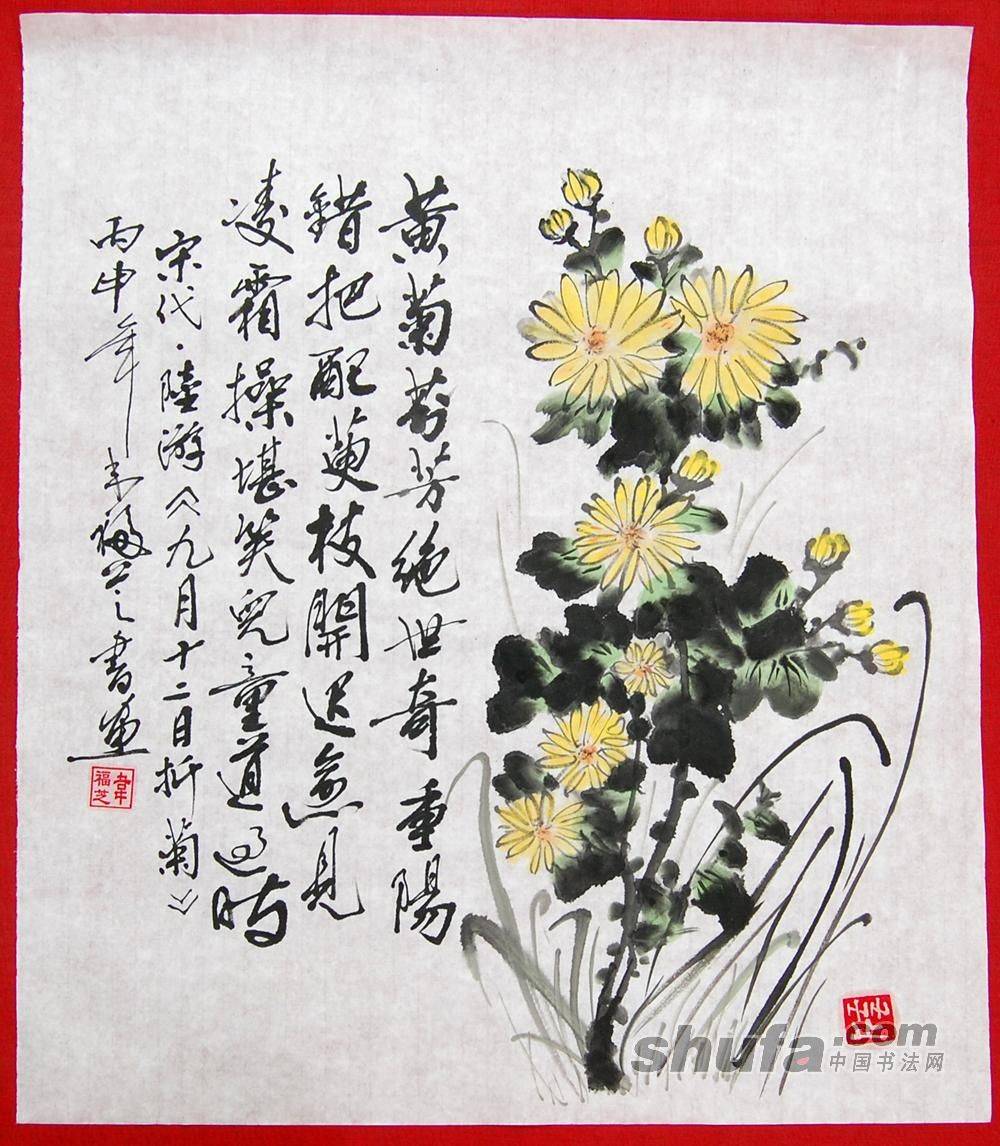 黄菊芬芳絕世奇重陽
錯把配萸枝開遲愈見
凌霜操堪笑兒童道過時
宋代·陸游《九月十二日折菊》
丙申年福芝書画
福芝
shufa.com
中国书法网